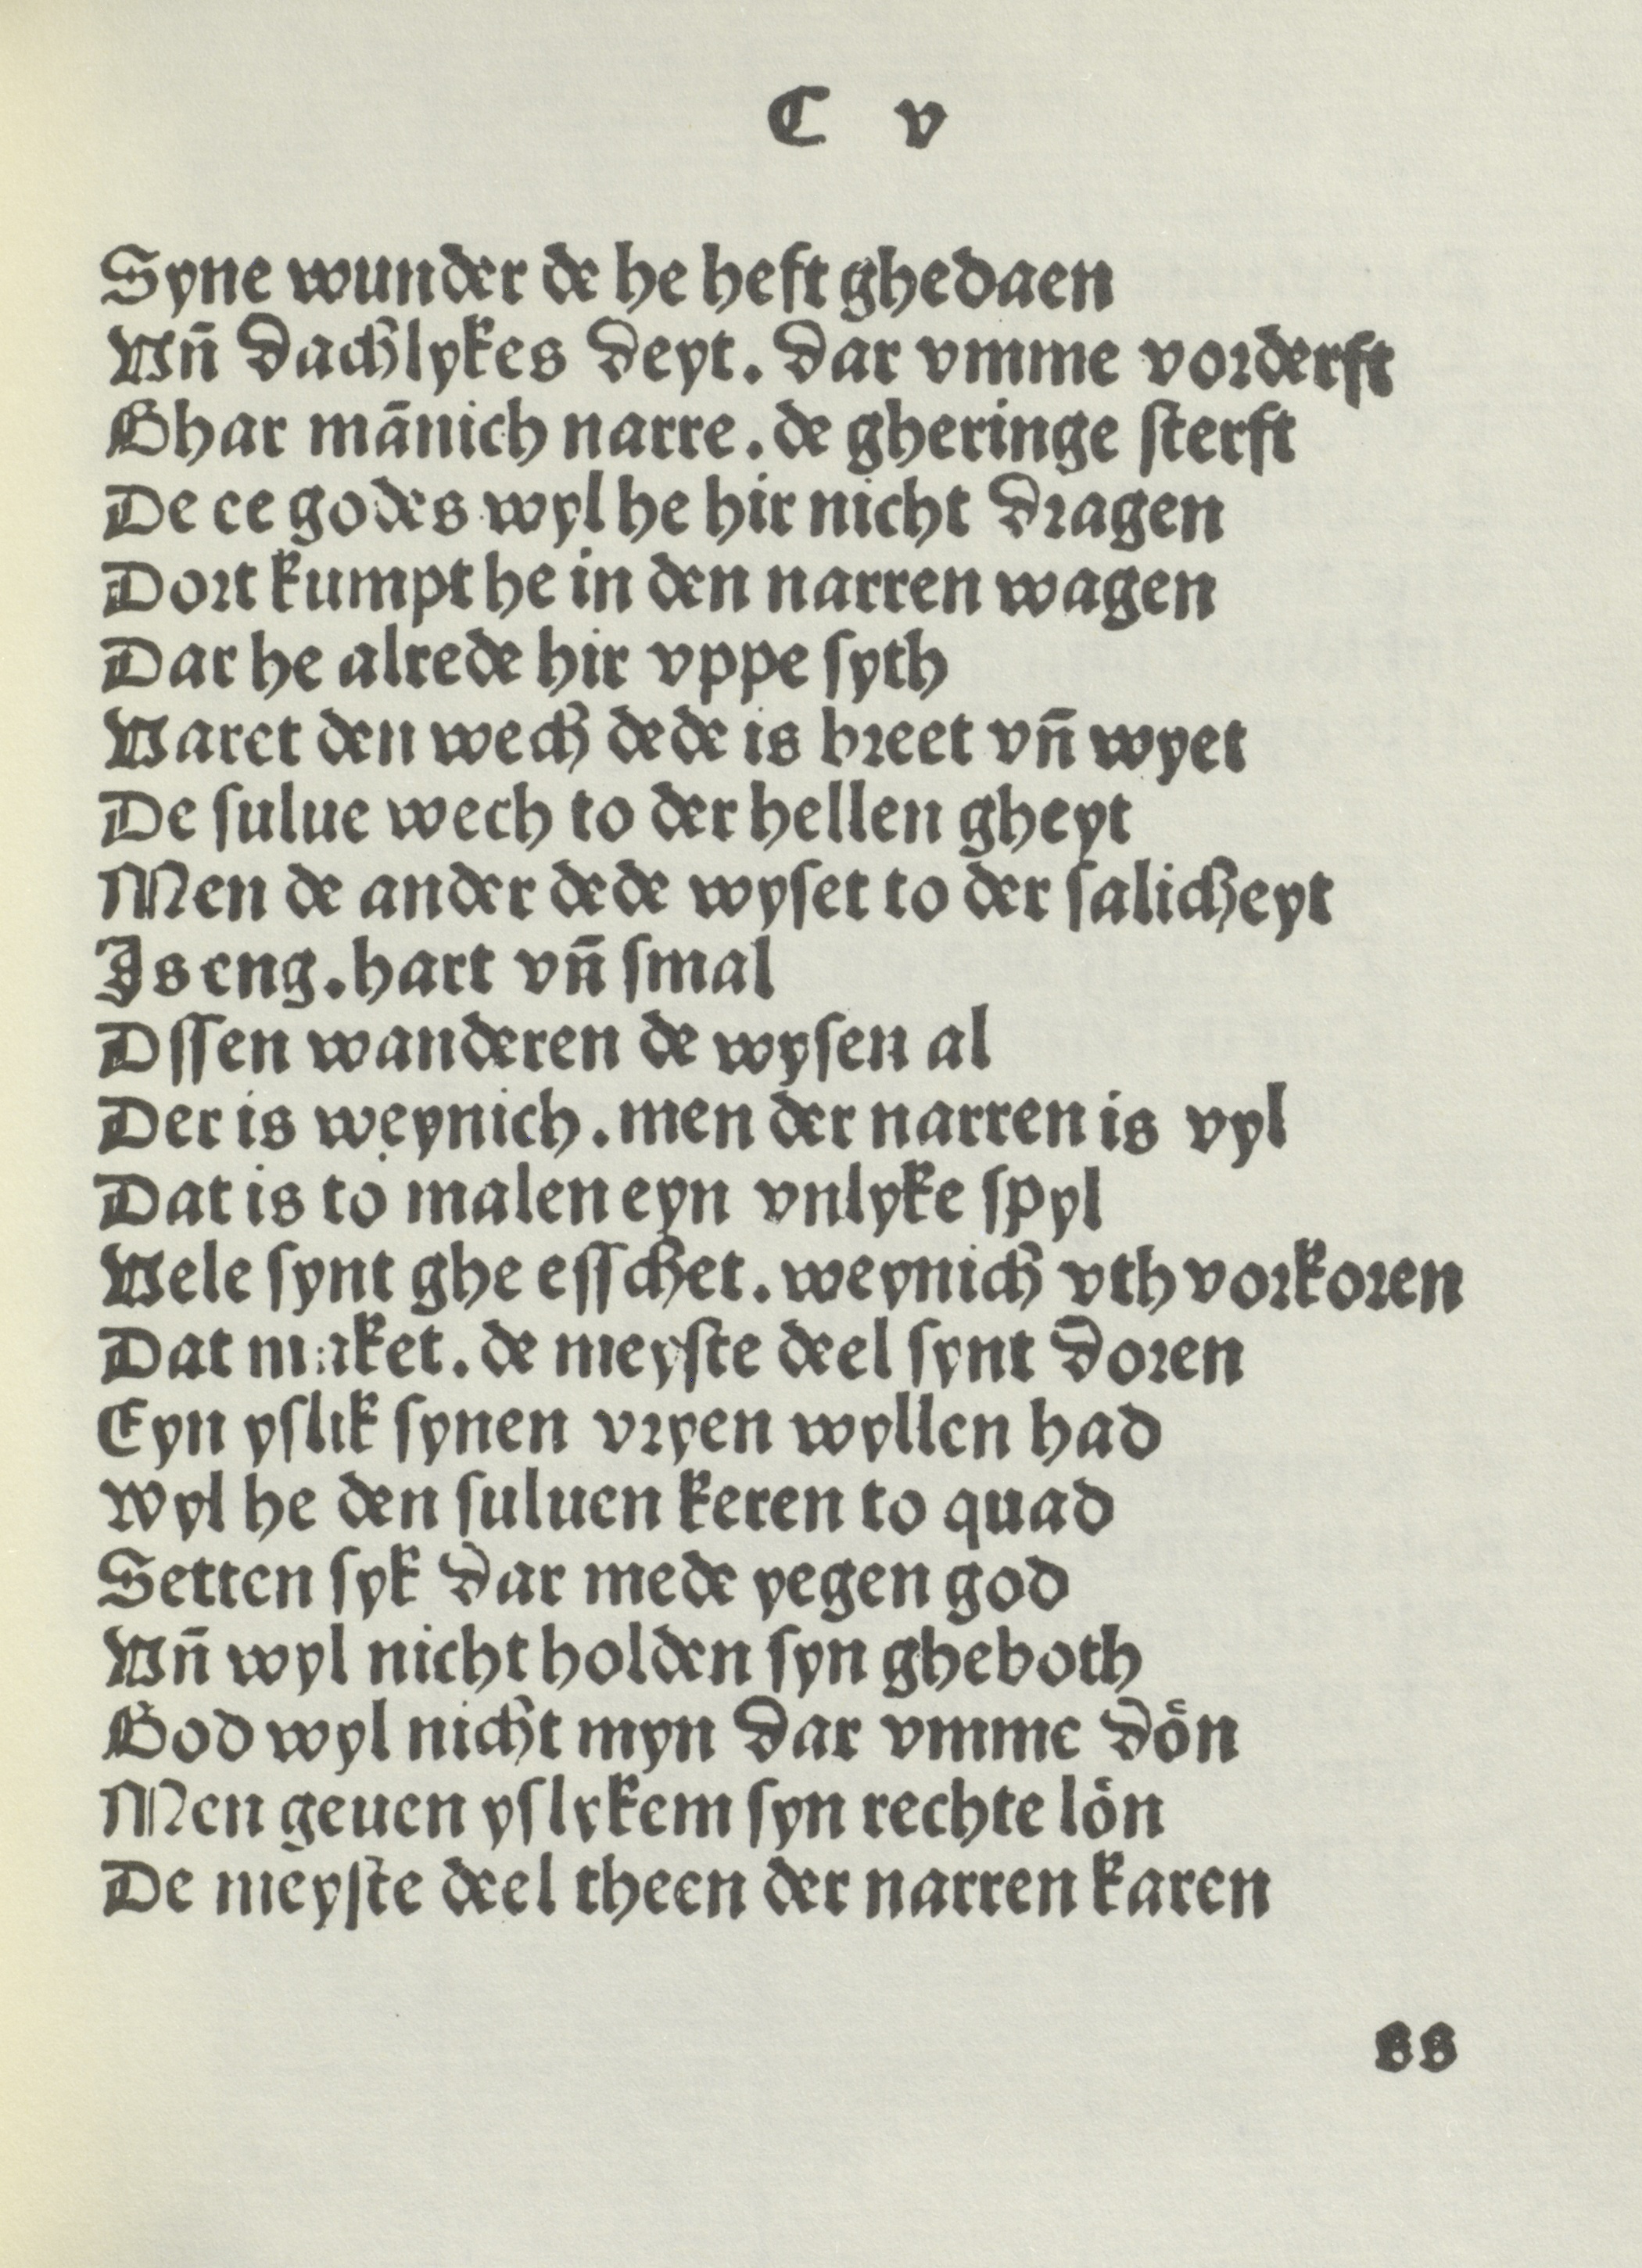 C v
Syne wunder de he heft ghedaen
Vn̄ dachlykes deyt. dar vmme vorderft
Ghar mānich narre. de gheringe ſterft
De ce godes wyl he hir nicht dragen
Dort kumpt he in den narren wagen
Dar he alrede hir vppe ſyth
Varet den wech dede is breet vn̄ wyet
De ſulue wech to der hellen gheyt
Men de ander dede wyſet to der ſalicheyt
Is eng. hart vn̄ ſmal
Dſſen wanderen de wyſen al
Der is weynich. men der narren is vyl
Dat is to malen eyn vnlyke ſpyl
Vele ſynt ghe eſſchet. weynich vth vorkoren
Dat maket. de meyſte deel ſynt doren
Eyn yſlik ſynen vryen wyllen had
Wyl he den ſuluen keren to quad
Setten ſyk dar mede yegen god
Vn̄ wyl nicht holden ſyn gheboth
God wyl nicht myn dar vmme doͤn
Men geuen yſlykem ſyn rechte loͤn
De meyſte deel theen der narren karen
ss